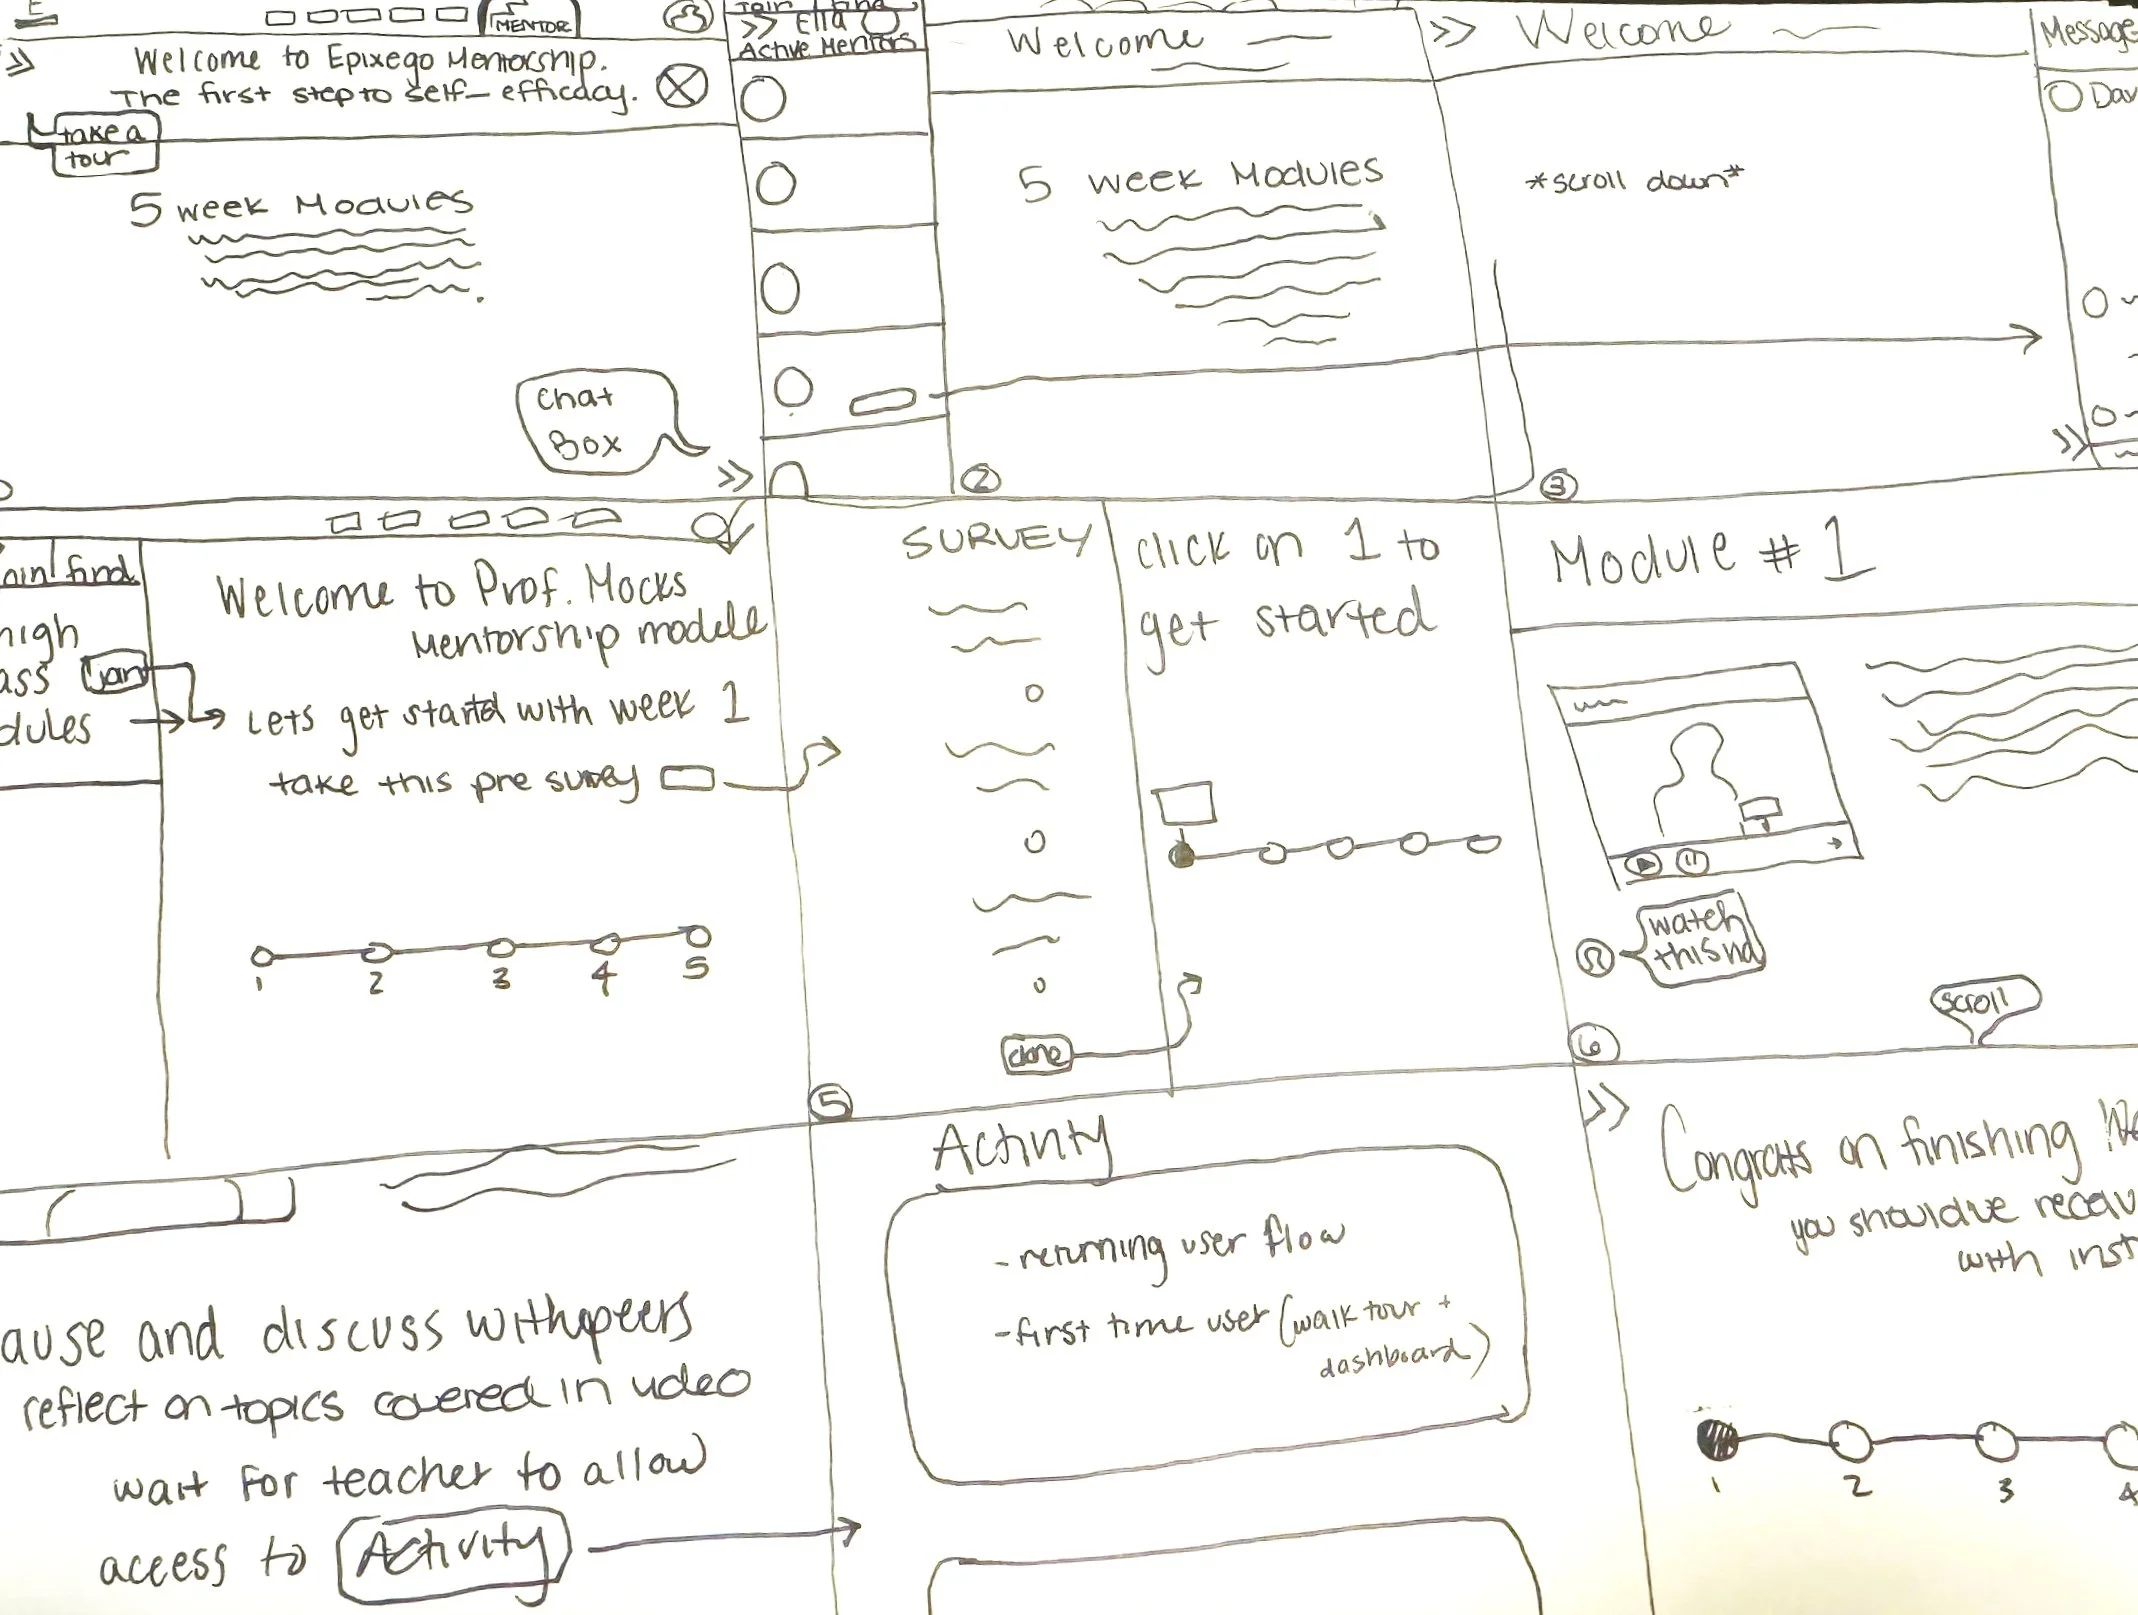 E
MENTOR
>>
Welcome to Epixego Mentorship.
The first step to self-efficacy.
take a
tour
5 week Modules
Chat
Box
>>
>> Ella
Active Mentors
Welcome
5 week Modules
2
>> Welcome
*scroll down*
3
Message
Dav
>>
find
high
ass
join
dules
Welcome to Prof. Mocks
Mentorship module
Lets get started with week 1
take this pre survey
1 2 3 4 5
SURVEY
done
5
click on 1 to
get started
Module # 1
watch
this
scroll
6
ause and discuss with peers
reflect on topics covered in video
wait for teacher to allow
access to Activity
Activity
-returning user flow
-first time user (walk tour +
dashboard)
>>
Congrats on finishing
you shouldve
with inst
1 2 3 4